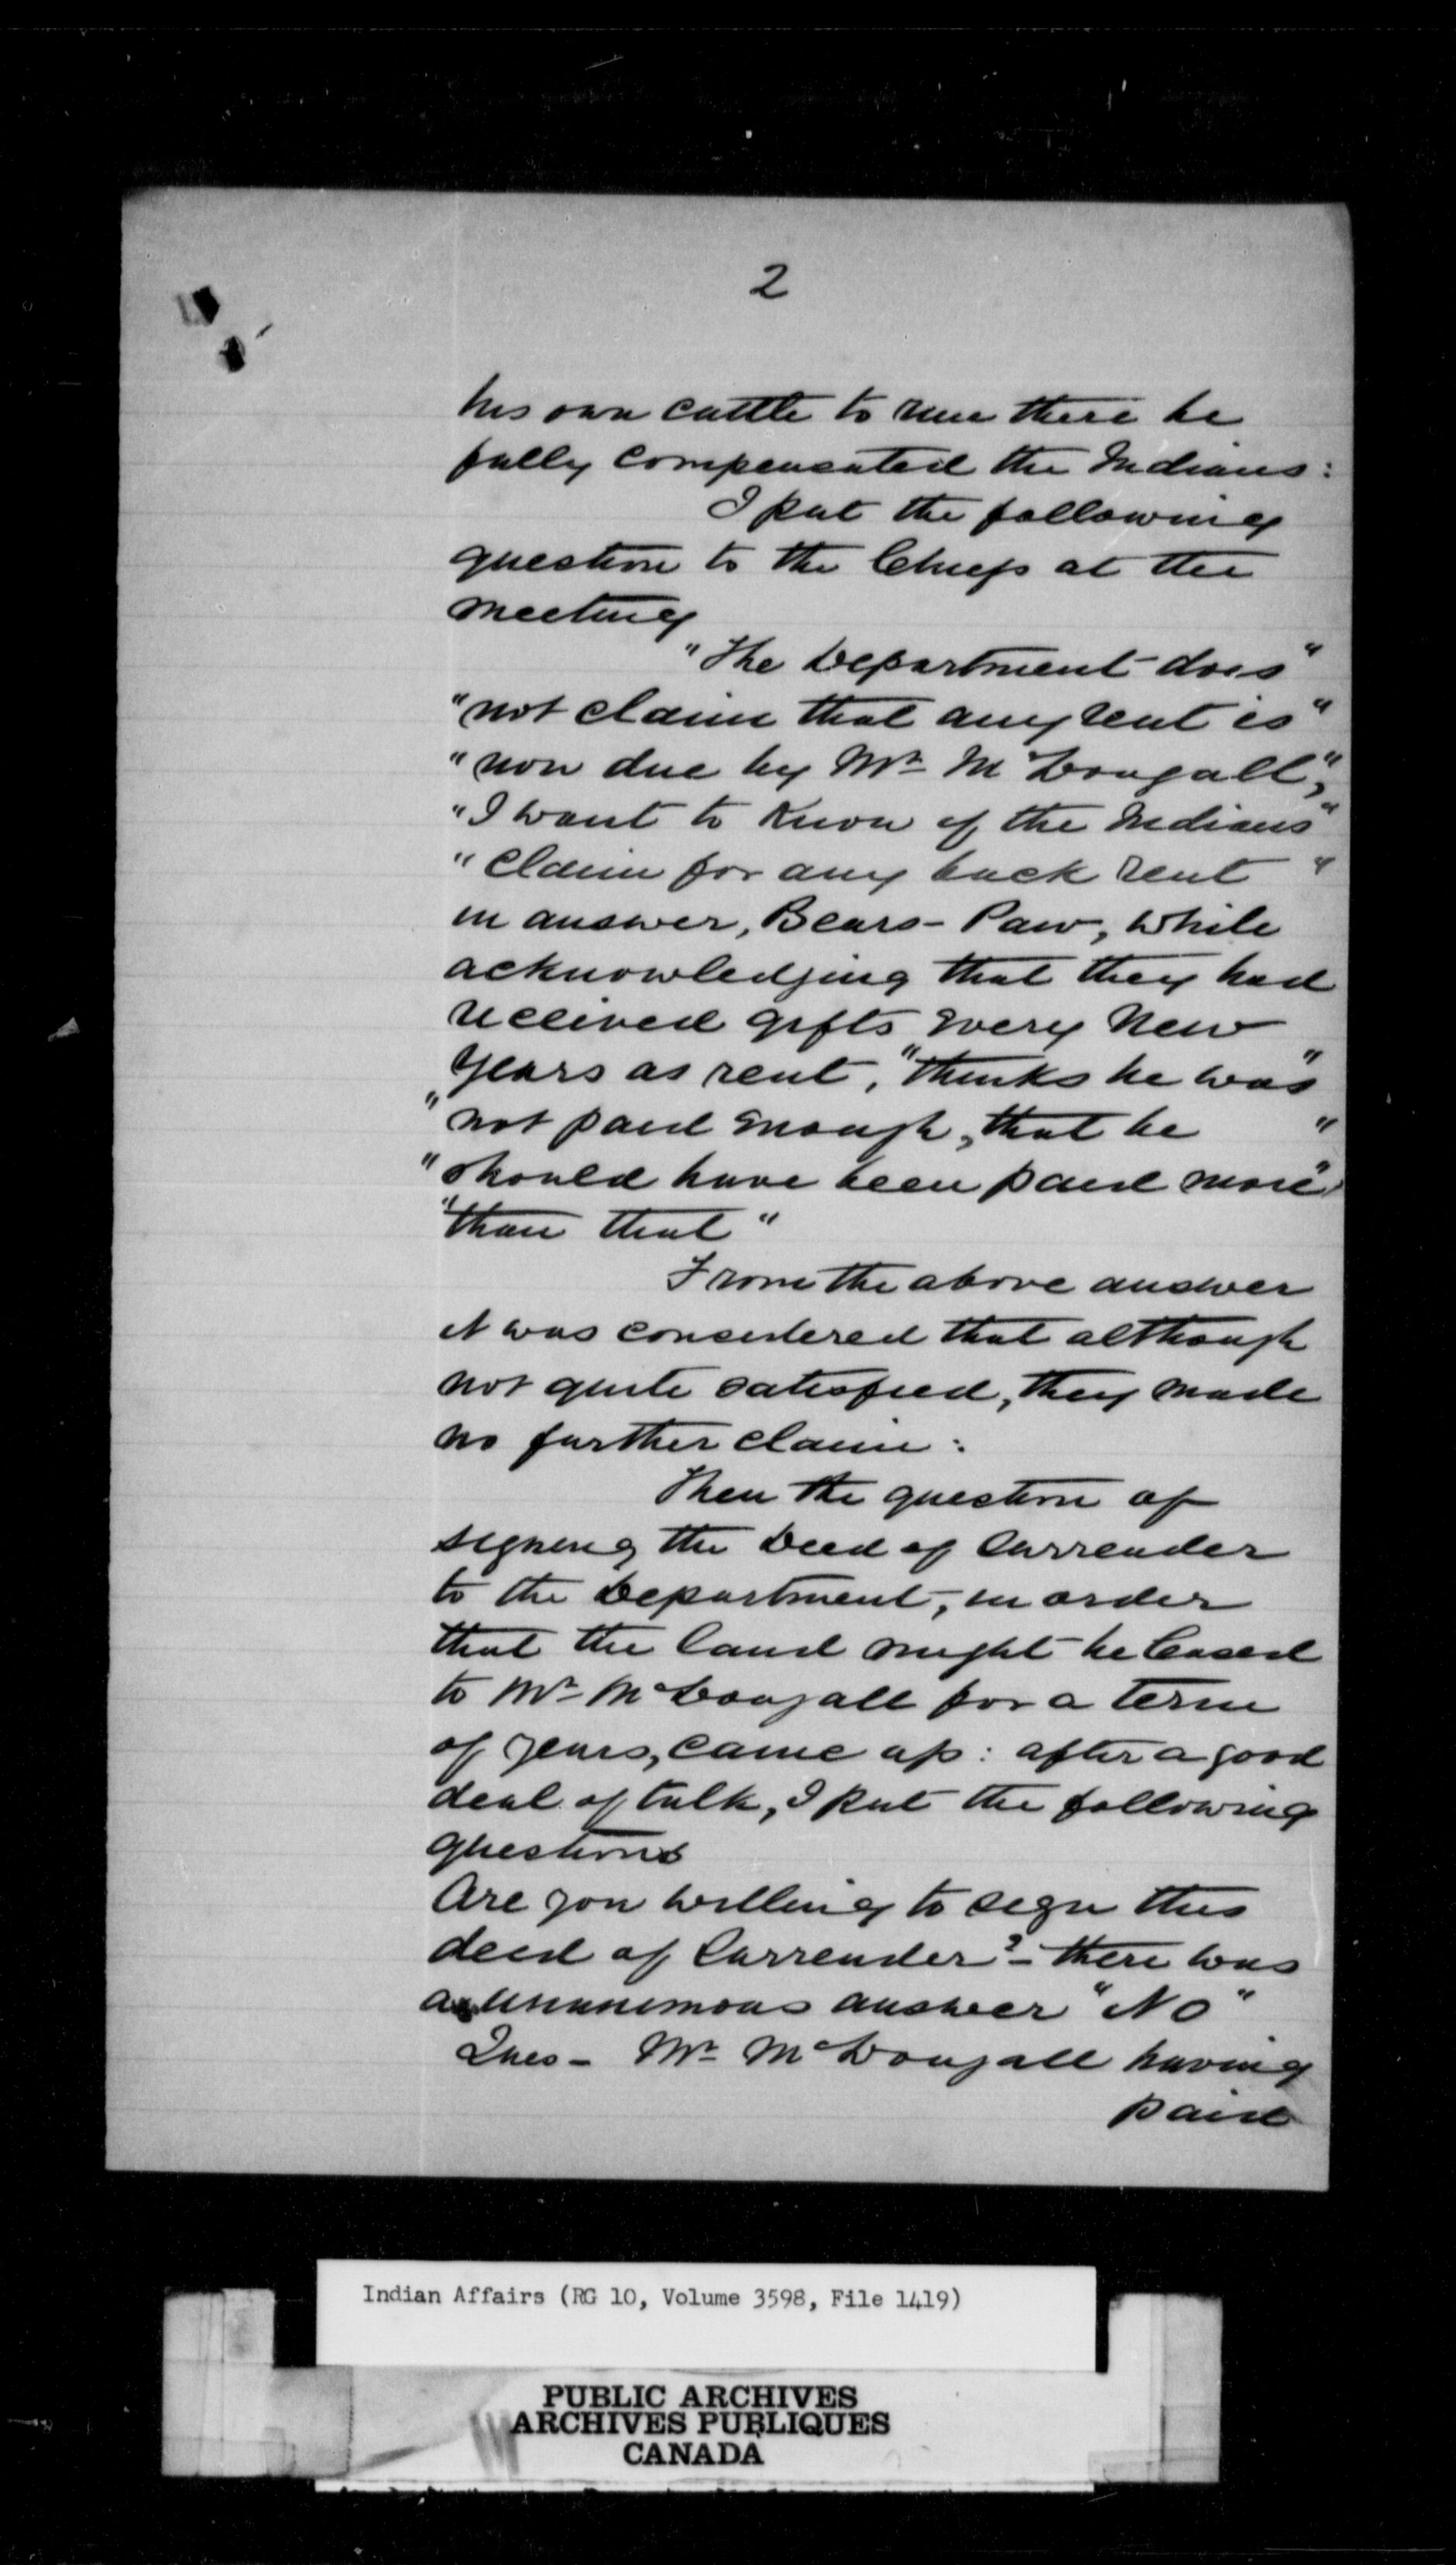 2
his own cattle to run there he
fully compensated the Indians:
I put the following
question to the Chiefs at the
meeting
"The Department does"
"not claim that any rent is"
"now due by Mr McDougall,"
"I want to know if the Indians"
"claim for any back rent"
in answer, Bears-Paw, while
acknowledging that they had
received gifts every New
Years as rent, "thinks he was"
"not paid enough, that he"
"should have been paid more"
"than that"
From the above answer
it was considered that although
not quite satisfied, they made
no further claim:
Then the question of
signing the Deed of Surrender
to the Department, in order
that the land might be leased
to Mr McDougall for a term
of years, came up: after a good
deal of talk, I put the following
questions
Are you willing to sign this
deed of Surrender? - there was
a unanimous answer "No"
Ques - Mr McDougall having
paid
Indian Affairs (RG 10, Volume 3598, File 1419)
PUBLIC ARCHIVES
ARCHIVES PUBLIQUES
CANADA